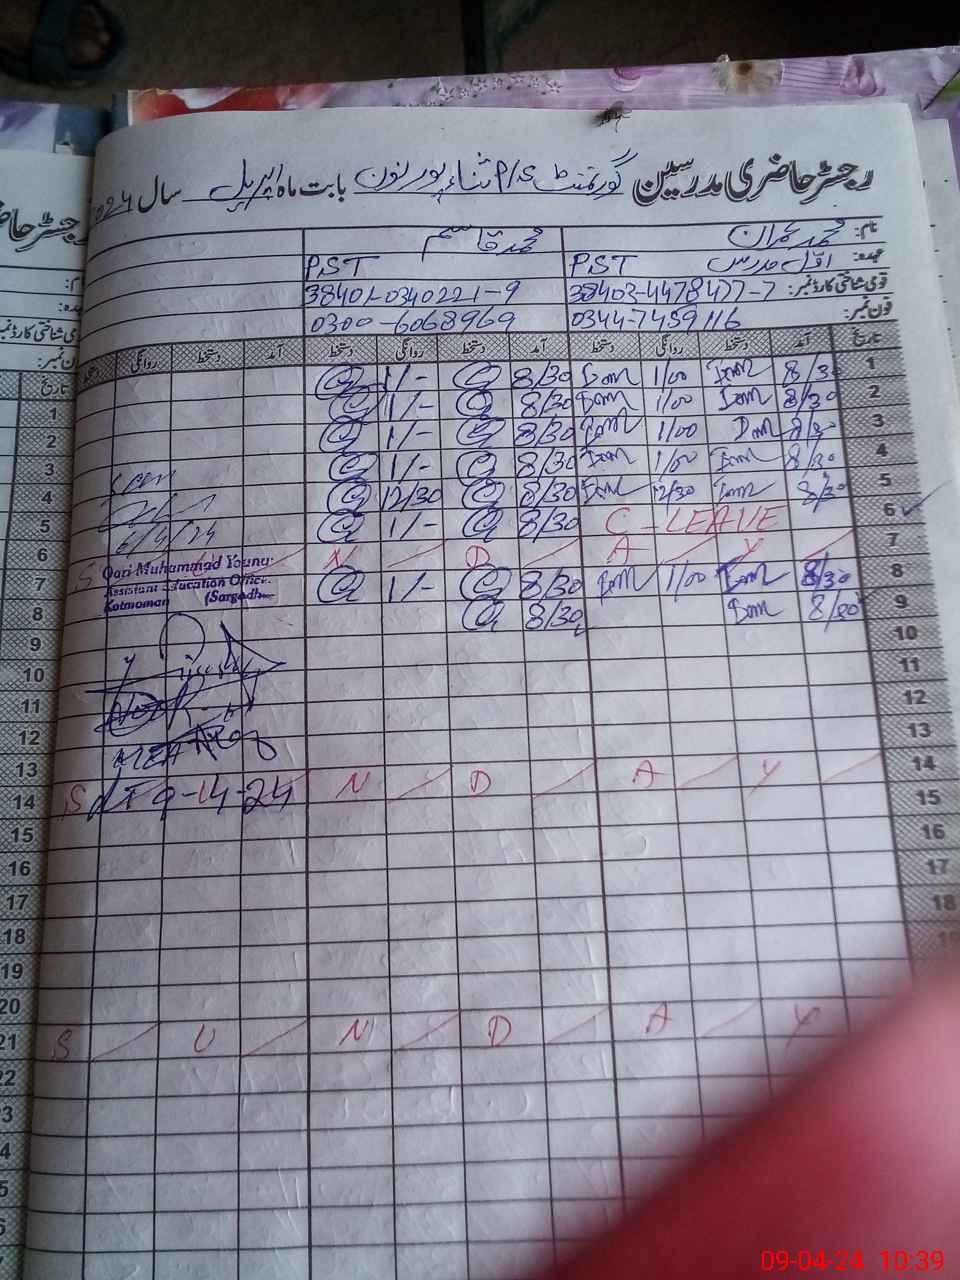 رجسٹر حاضری مدرسین گورنمنٹ P/S ثناء پور نون بابت ماہ اپریل سال 2024
نام: محمد عمران محمد قاسم
عہدہ: اوّل مدرس PST PST
قومی شناختی کارڈ نمبر: 38403-4478477-7 38401-0340221-9
فون نمبر: 0344-7459116 0300-6068969
تاریخ آمد دستخط روانگی دستخط آمد دستخط روانگی دستخط آمد دستخط روانگی
1 8/30 Imm 1/00 Imm 8/30 1/-
2 8/30 Imm 1/00 Imm 8/30 1/-
3 8/30 Imm 1/00 Imm 8/30 1/-
4 8/30 Imm 1/00 Imm 8/30 1/-
5 8/30 Imm 12/30 Imm 8/30 12/30
6 C-LEAVE 8/30 1/-
7 S N D A Y
8 8/30 Imm 1/00 Imm 8/30 1/-
9 8/30 Imm 8/30
6/4/24
Qari Muhammad Younas
Assistant Education Officer
Kotmoman (Sargodha)
10
11
12
13
14 S N D A Y
dT 9-14-24
15
16
17
18
19
20
21 S U N D A Y
22
23
رجسٹر حا
نام:
عہدہ:
قومی شناختی کارڈ نمبر
فون نمبر:
تاریخ
1
2
3
4
5
6
7
8
9
10
11
12
13
14
15
16
17
18
09-04-24 10:39